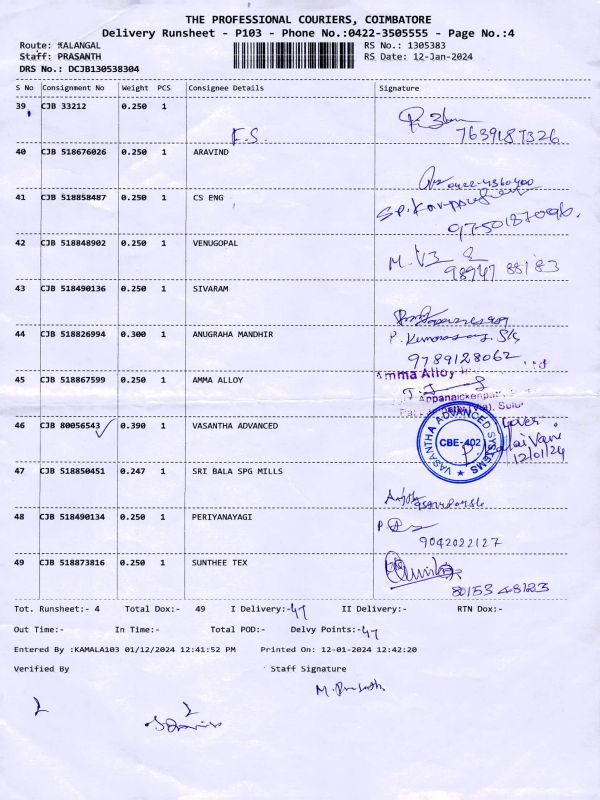 THE PROFESSIONAL COURIERS, COIMBATORE
Delivery Runsheet - P103 - Phone No.:0422-3505555 - Page No.:4
Route: KALANGAL RS No.: 1305383
Staff: PRASANTH RS Date: 12-Jan-2024
DRS No.: DCJB130538304
S No Consignment No Weight PCS Consignee Details Signature
39 CJB 33212 0.250 1
F.S. 7639187326
40 CJB 518676026 0.250 1 ARAVIND
0422-4360400
41 CJB 518858487 0.250 1 CS ENG
9750187096.
42 CJB 518848902 0.250 1 VENUGOPAL
98947 88183
43 CJB 518490136 0.250 1 SIVARAM
44 CJB 518826994 0.300 1 ANUGRAHA MANDHIR
9789128062
45 CJB 518867599 0.250 1 AMMA ALLOY Amma Alloy
46 CJB 80056543 0.390 1 VASANTHA ADVANCED
VASANTHA ADVANCED SYSTEMS
CBE-402
12/01/24
47 CJB 518850451 0.247 1 SRI BALA SPG MILLS
48 CJB 518490134 0.250 1 PERIYANAYAGI
9042022127
49 CJB 518873816 0.250 1 SUNTHEE TEX
80153 48123
Tot. Runsheet:- 4 Total Dox:- 49 I Delivery:-47 II Delivery:- RTN Dox:-
Out Time:- In Time:- Total POD:- Delvy Points:-47
Entered By :KAMALA103 01/12/2024 12:41:52 PM Printed On: 12-01-2024 12:42:20
Verified By Staff Signature